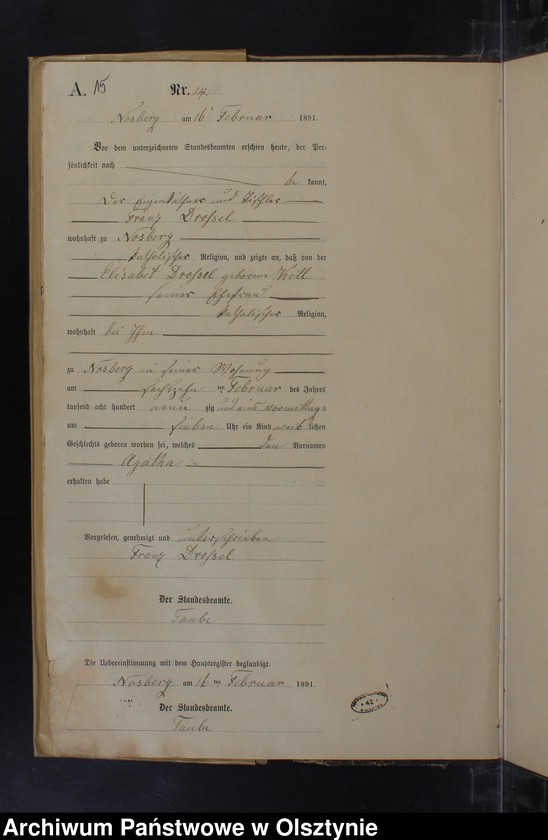 A. 15 Nr. 14.
Nosberg am 16 Februar 1891.
Vor dem unterzeichneten Standesbeamten erschien heute, der Per-
sönlichkeit nach
be kannt,
Der Eigenkäthner und Tischler
Franz Drossel
wohnhaft zu Nosberg
katholischer Religion, und zeigte an, daß von der
Elisabet Drossel geborene
seiner Ehefrau
katholischer Religion,
wohnhaft bei Ihm
zu Nosberg in seiner Wohnung
am sechszehn ten Februar des Jahres
tausend acht hundert neun zig und eins vormittag s
um sieben Uhr ein Kind weib lichen
Geschlechts geboren worden sei, welches den Vornamen
Agatha
erhalten habe
Vorgelesen, genehmigt und unterschrieben
Franz Drossel
Der Standesbeamte.
Taube
Die Uebereinstimmung mit dem Hauptregister beglaubigt.
Nosberg am 16 ten Februar 1891.
Der Standesbeamte.
Taube
42
Archiwum Państwowe w Olsztynie